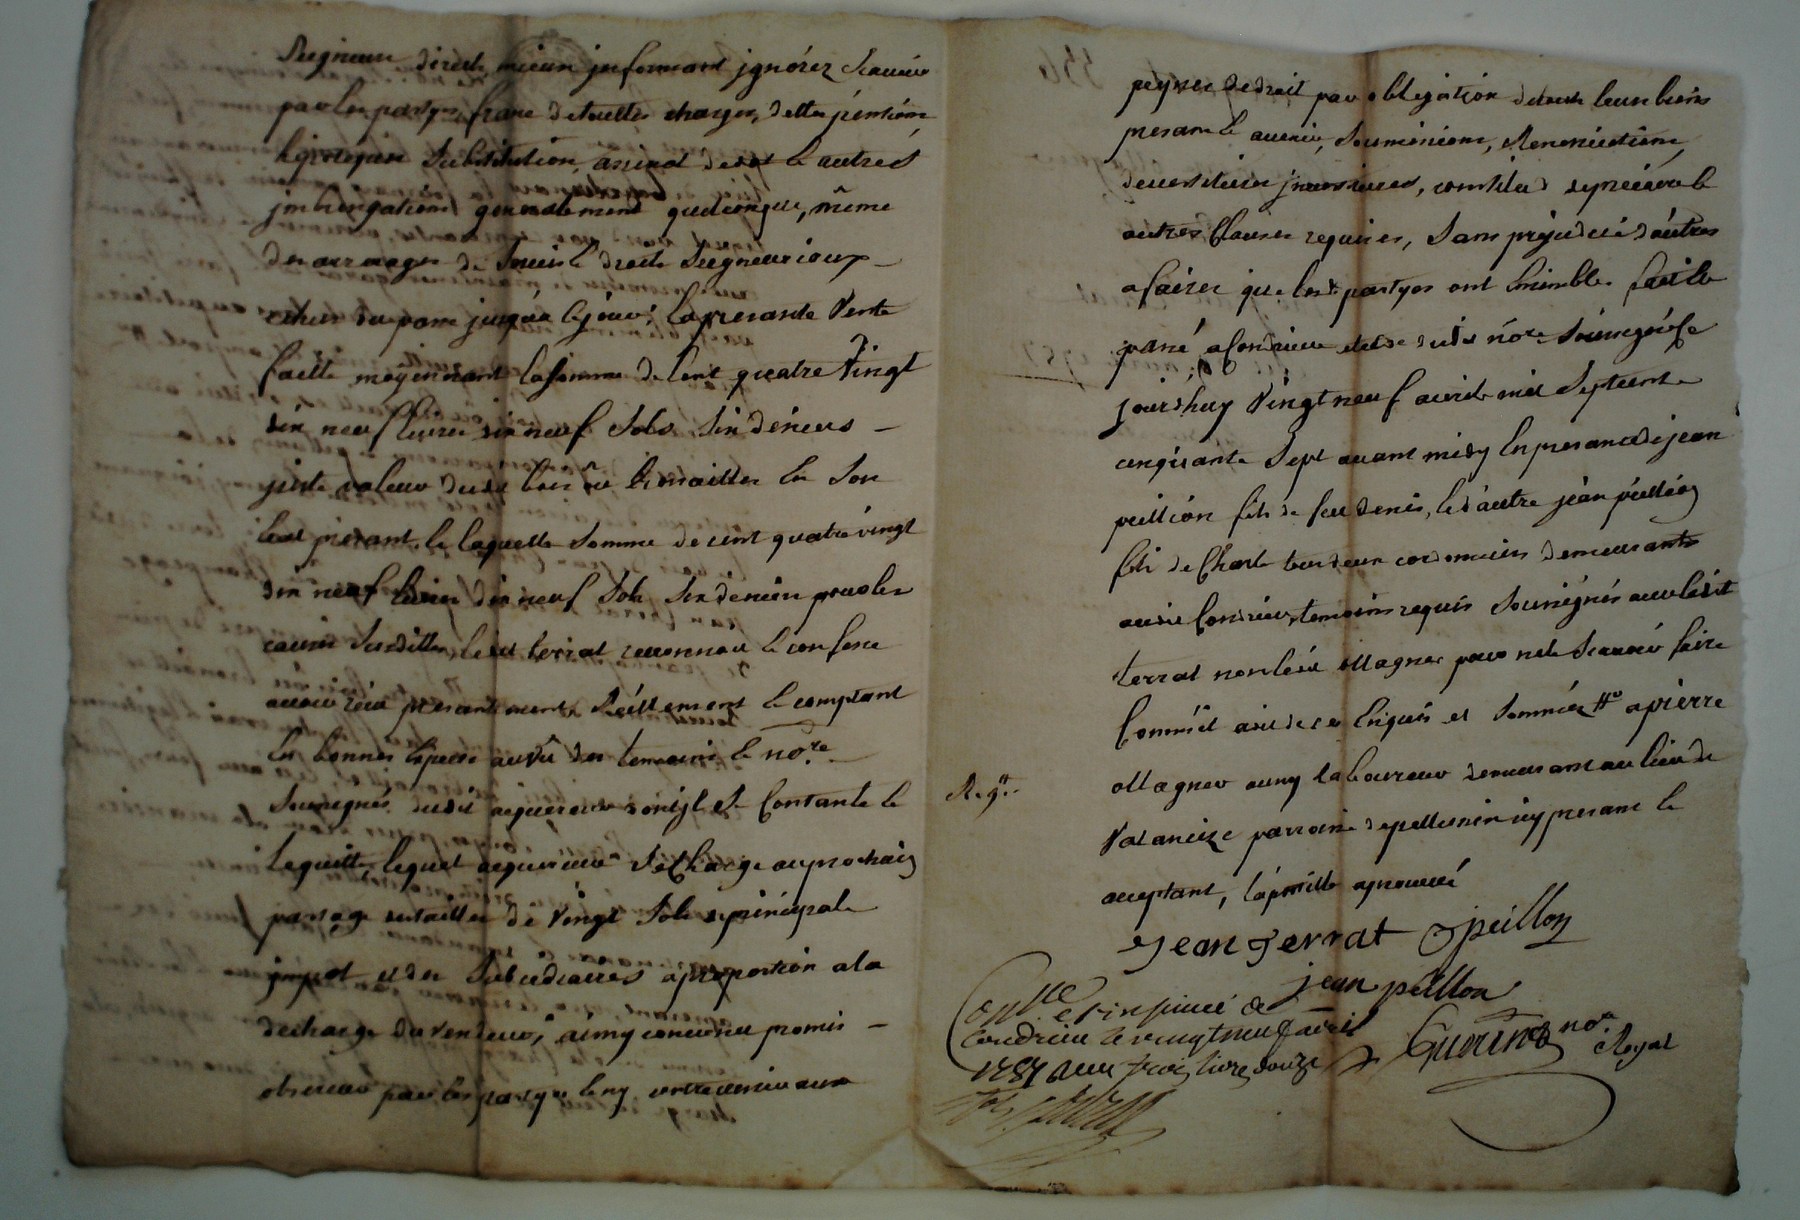 Seigneur direct, mieux informant ignorer scavoir
par les partyes, franc de touttes charges, dettes, pentions
hipoteques substitution, arrirat de et autres
generalement quelconque, même
des arrerages de servis & droits Seigneuriaux
echus du passé jusqu'a ce jour, la presante Vente
faitte moyennant la somme de Cent quatre Vingt
dix neuf livres dix neuf Sols Six deniers
juste valeur dudit bois ou broussailles En Son
Etat presant, & laquelle Somme de cent quatre vingt
dix neuf livres dix neuf Sols Six deniers pour les
causes Susdittes, ledit terrat reconnoit & confesse
avoir réçu presantement Réellement & comptant
En bonnes Especes au vû des temoins & no.re
Soussignés dudit acquereur dont jl Se Contante &
le quitte, lequel acquereur Se Charge au prochain
partage des tailles de Vingt Sols de principale
impot et des Subsidiaires a proportion a la
decharge du vendeur, ainsy convenu promis
observer par les partyes & ny contrevenir aux
peynes de droit par obligation de touts leurs biens
presant & avenir, Soumissions, Renonciations,
de cessitaires , constitué de precaire &
autres Clauses requises, Sans prejudice d'autres
afaires que lesd. partyes ont Ensemble. fait &
passé a Condrieu etude dudit no.re Soussigné ce
jourd'huy Vingt neuf avril mil Septcent
cinquante Sept avant midy En presance de jean
peillion fils de feu denis, & d'autre jean peillion
fils de Charle tondeur cordonniers demeurants
audit Condrieu, temoins requis Soussignés avec ledit
terrat non ledit Magner pour ne le Scavoir faire
Comme il a dit de ce Enquis et Sommés # a pierre
Magner aussy laboureur demeurant au lieu de
Valancize parroisse de pellussin icy presant &
acceptant, l'apostille aprouvée
Reg.t
jean Terrat jpeillon
jean peillon
Con.lle et insinué a
Condrieu le vingt neuf avril
1757 Reçu trois livre douze s
Guerin no.re Royal